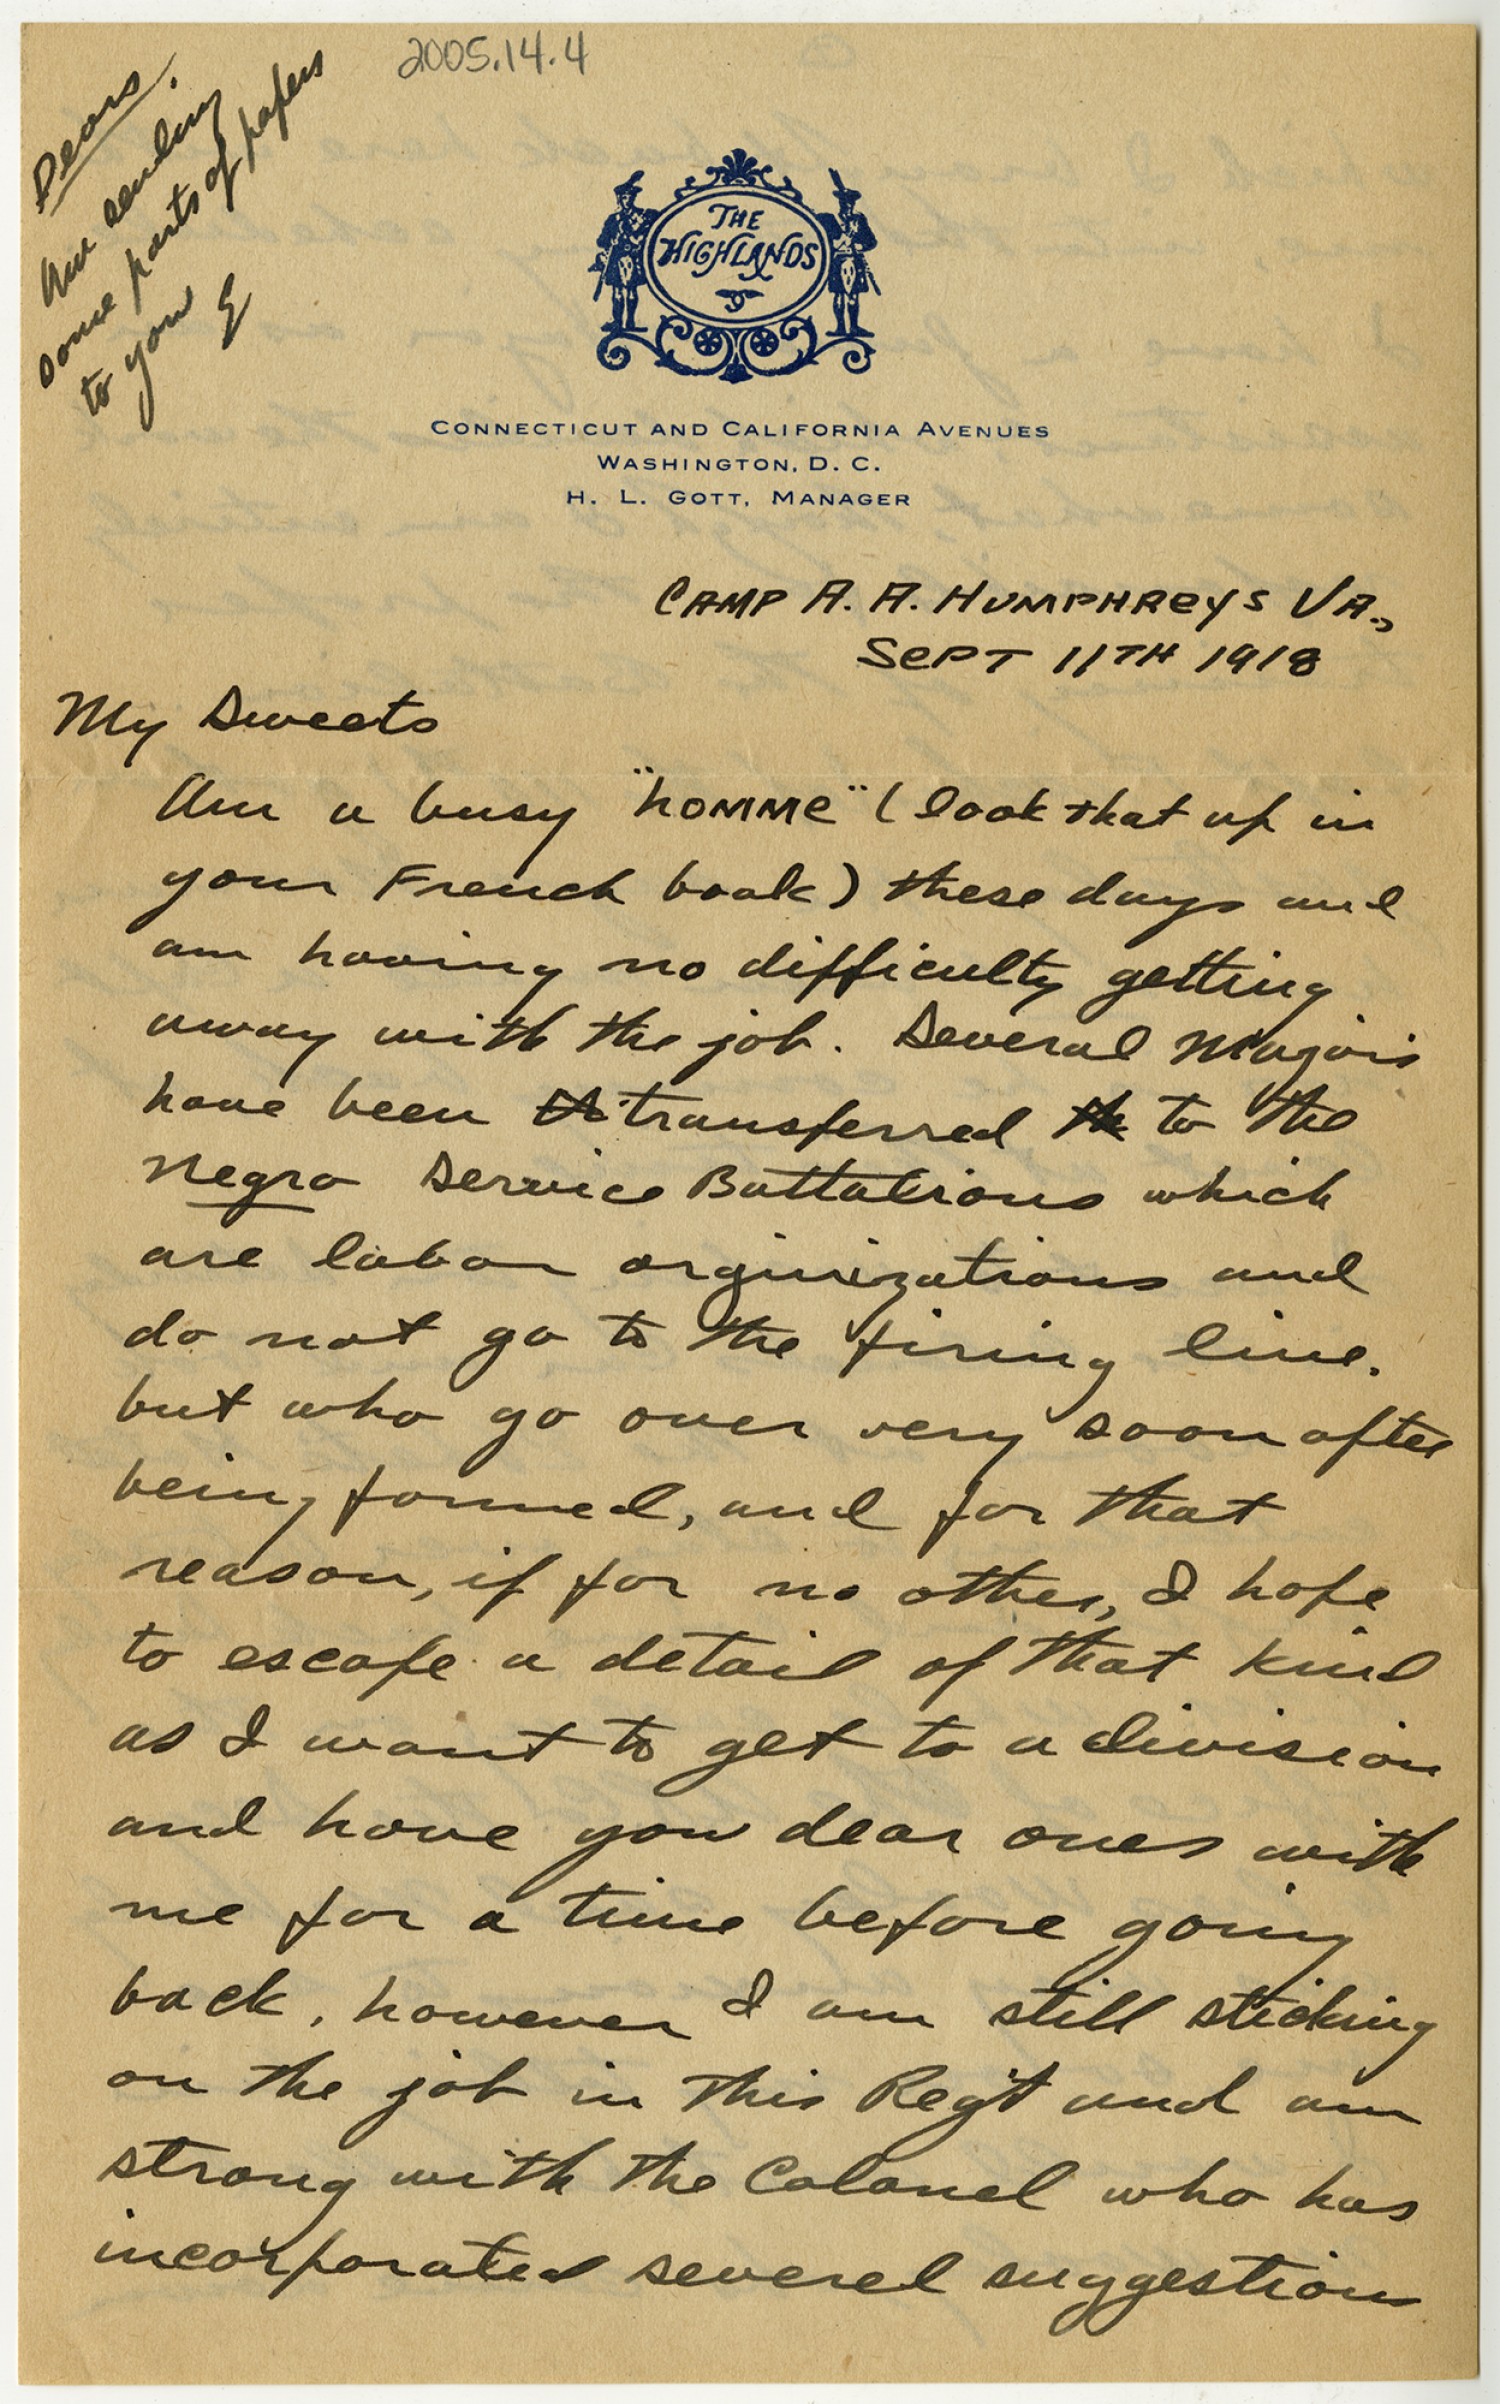 2005.14.4
Dears.
Am sending
some parts of papers
to you
E
THE
HIGHLANDS
CONNECTICUT AND CALIFORNIA AVENUES
WASHINGTON, D. C.
H. L. GOTT, MANAGER
CAMP A. A. HUMPHREYS VA.,
SEPT 11TH 1918
My Sweets
Am a busy "homme" (look that up in
your French book) these days and
am having no difficulty getting
away with the job. Several Majors
have been transferred to the
Negro Service Battalions which
are labor orginizations and
do not go to the firing line.
but who go over very soon after
being formed, and for that
reason, if for no other, I hope
to escape a detail of that kind
as I want to get to a division
and have you dear ones with
me for a time before going
back, however I am still sticking
on the job in this Reg't and am
strong with the Colonel who has
incorporated severel suggestions